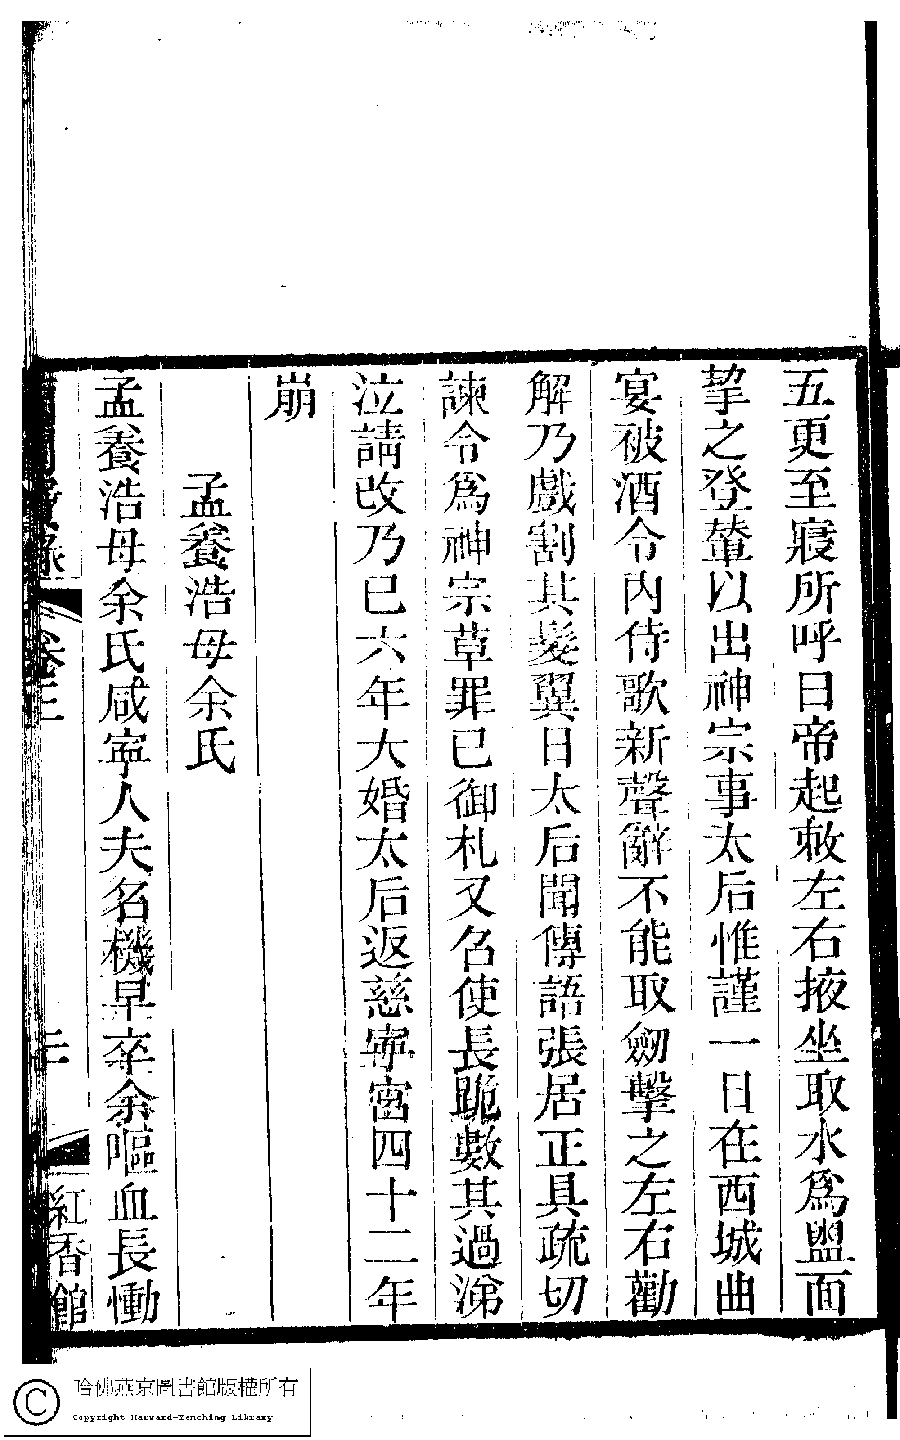 五更至寢所呼曰帝起敕左右掖坐取水爲盥面
挈之登輦以出神宗事太后惟謹一日在西城曲
宴被酒令內侍歌新聲辭不能取劒擊之左右勸
解乃戲割其髮翼日太后聞傳語張居正具疏切
諫令爲神宗草罪己御札又名使長跪數其過涕
泣請改乃已六年大婚太后返慈寧宮四十二年
崩
孟養浩母余氏
孟養浩母余氏咸寧人夫名機早卒余嘔血長慟
卷三
紅香館
哈佛燕京圖書館版權所有
Copyright Harvard-Yenching Library